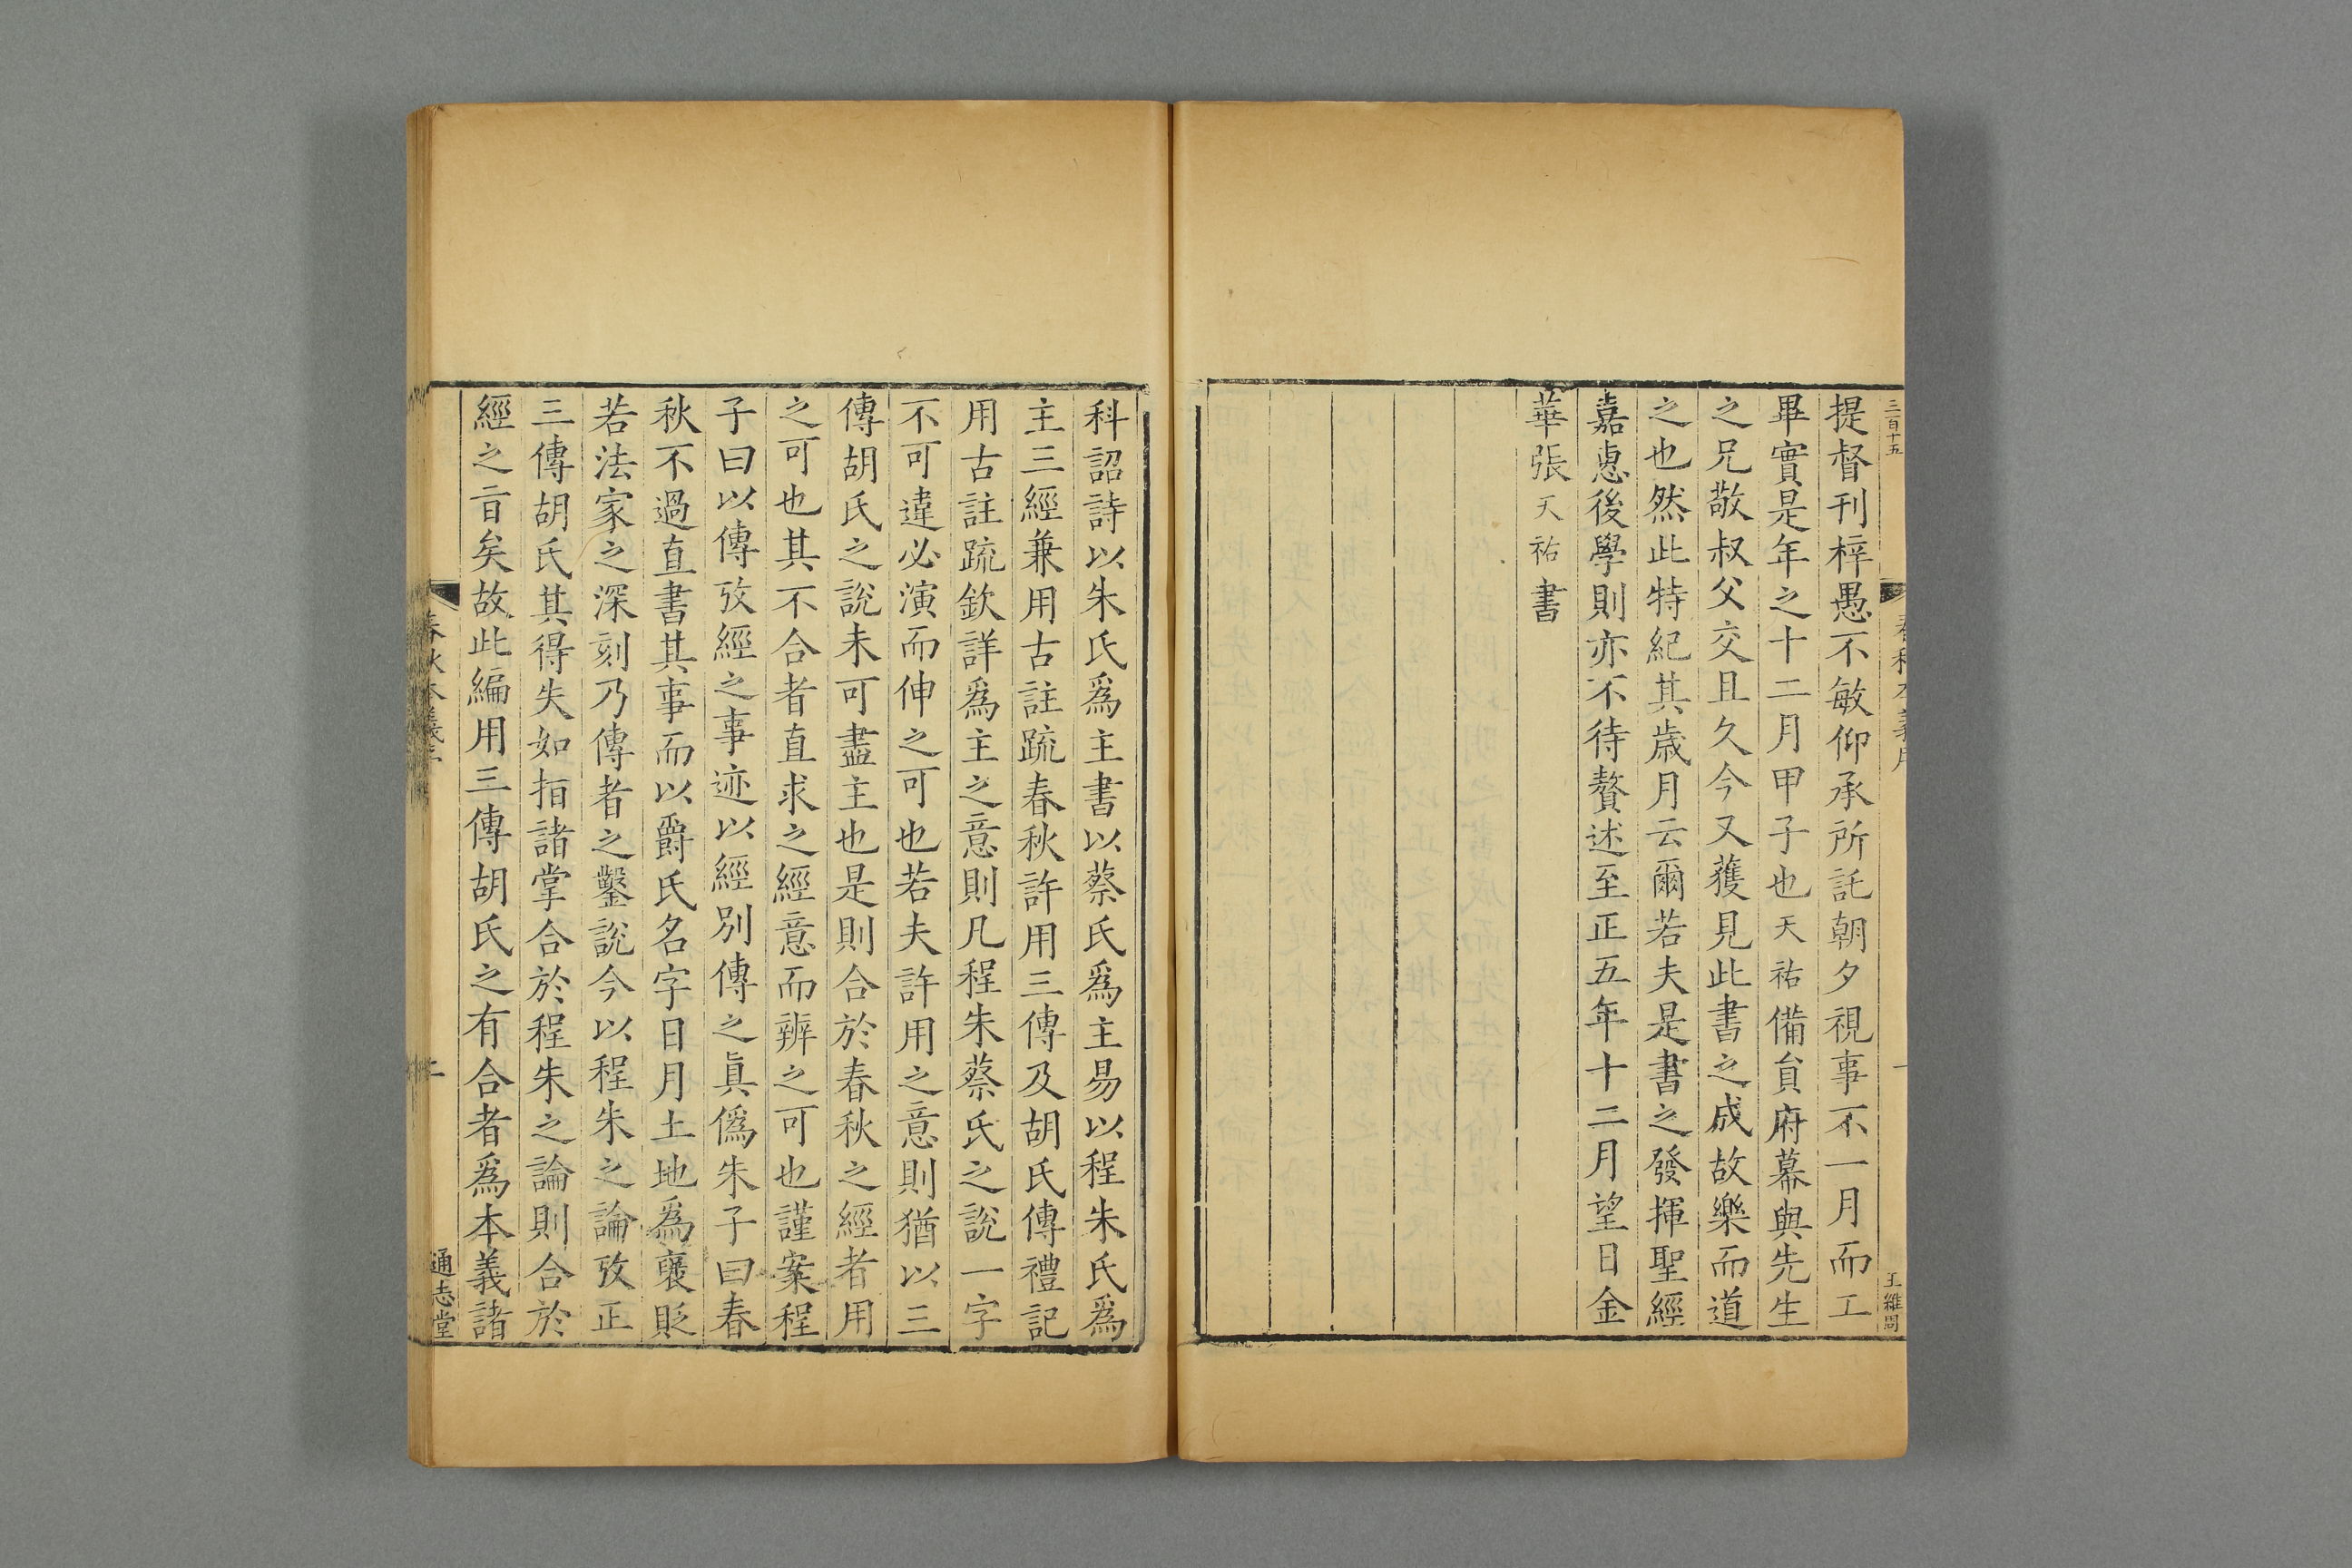 三百十五
春秋本義序
一
王維周
提督刊梓愚不敏仰承所託朝夕視事不一月而工
畢實是年之十二月甲子也天祐備貟府幕與先生
之兄敬叔父交且久今又獲見此書之成故樂而道
之也然此特紀其歲月云爾若夫是書之發揮聖經
嘉惠後學則亦不待贅述至正五年十二月望日金
華張天祐書
科詔詩以朱氏爲主書以蔡氏爲主易以程朱氏爲
主三經兼用古註䟽春秋許用三傳及胡氏傳禮記
用古註䟽欽詳爲主之意則凡程朱蔡氏之說一字
不可違必演而伸之可也若夫許用之意則猶以三
傳胡氏之說未可盡主也是則合於春秋之經者用
之可也其不合者直求之經意而辨之可也謹案程
子曰以傳攷經之事迹以經別傳之眞僞朱子曰春
秋不過直書其事而以爵氏名字日月土地爲襃貶
若法家之深刻乃傳者之鑿說今以程朱之論攷正
三傳胡氏其得失如指諸掌合於程朱之論則合於
經之旨矣故此編用三傳胡氏之有合者爲本義諸
春秋本義序
二
通志堂